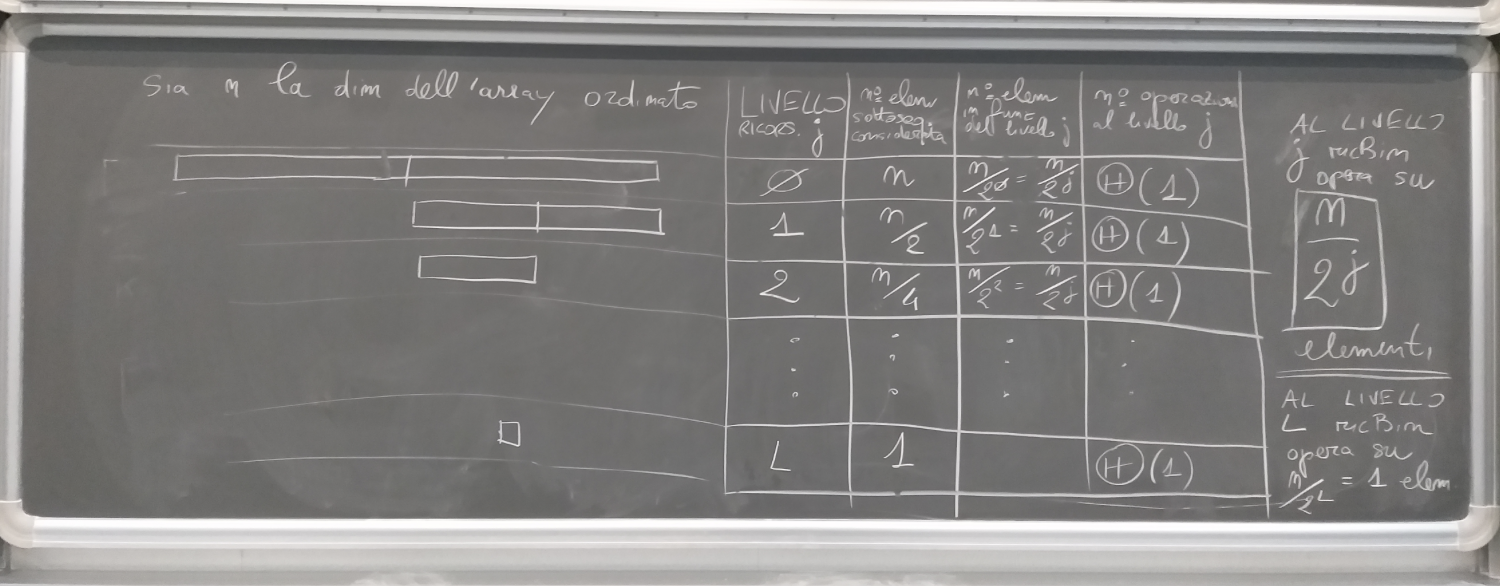 Sia n la dim dell'array ordinato
LIVELLO
RICORS. j
nº elem
sottoseq.
considerata
nº elem
in funz
del livello j
nº operazioni
al livello j
Ø
n
n/2^0 = n/2^j
Θ(1)
1
n/2
n/2^1 = n/2^j
Θ(1)
2
n/4
n/2^2 = n/2^j
Θ(1)
L
1
Θ(1)
AL LIVELLO
j ricBin
opera su
n
2^j
elementi
AL LIVELLO
L ricBin
opera su
n/2^L = 1 elem